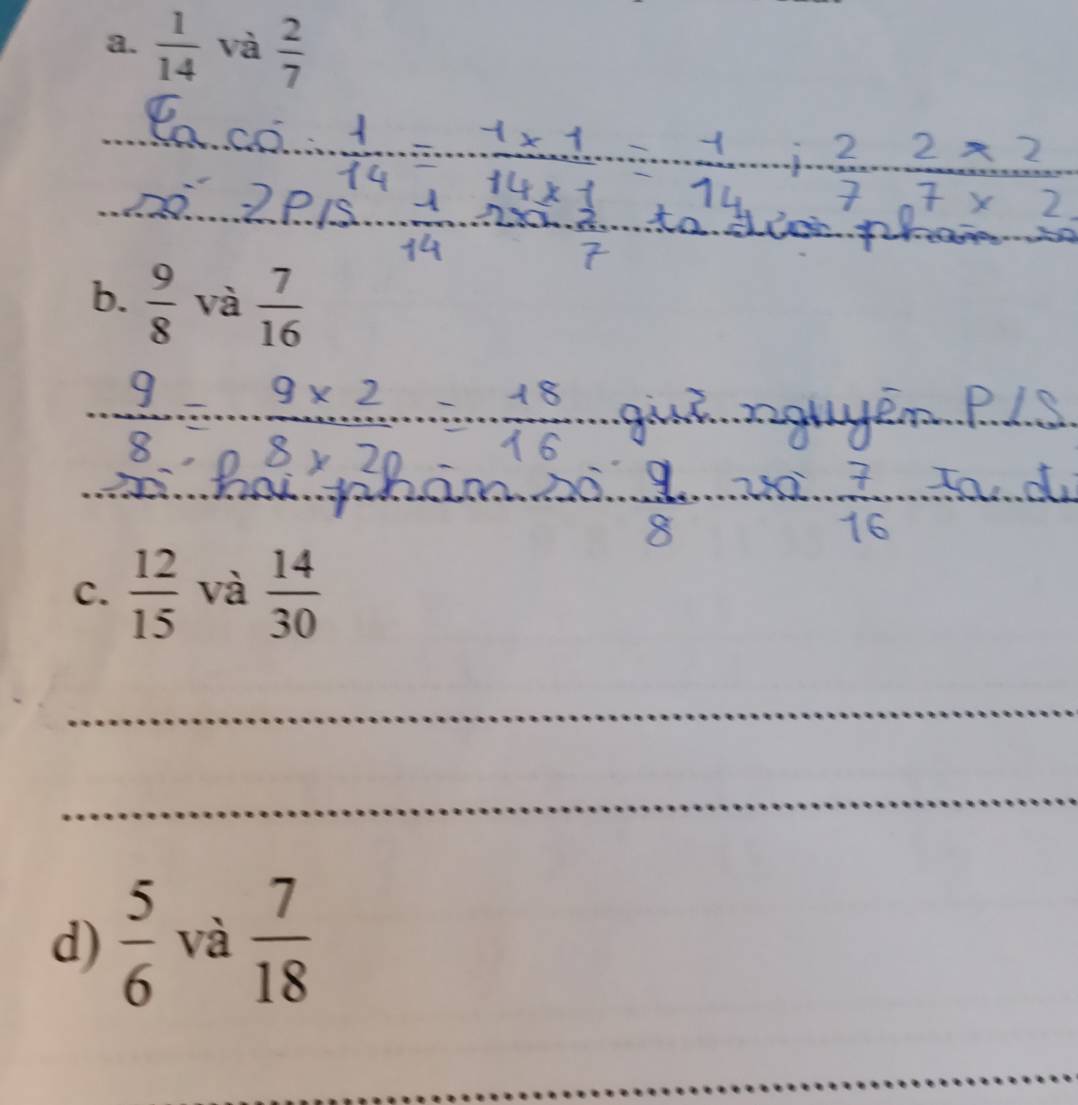 a. 1/14 và 2/7
Ta có: 1/14 = 1x1/14x1 = 1/14; 2/7 2x2/7x2
số 2P/S 1/14 và 2/7 ta phân
b. 9/8 và 7/16
9/8 = 9x2/8x2 = 18/16 giữ nguyên P/S
hai phân số 9/8 và 7/16 ta
c. 12/15 và 14/30
d) 5/6 và 7/18